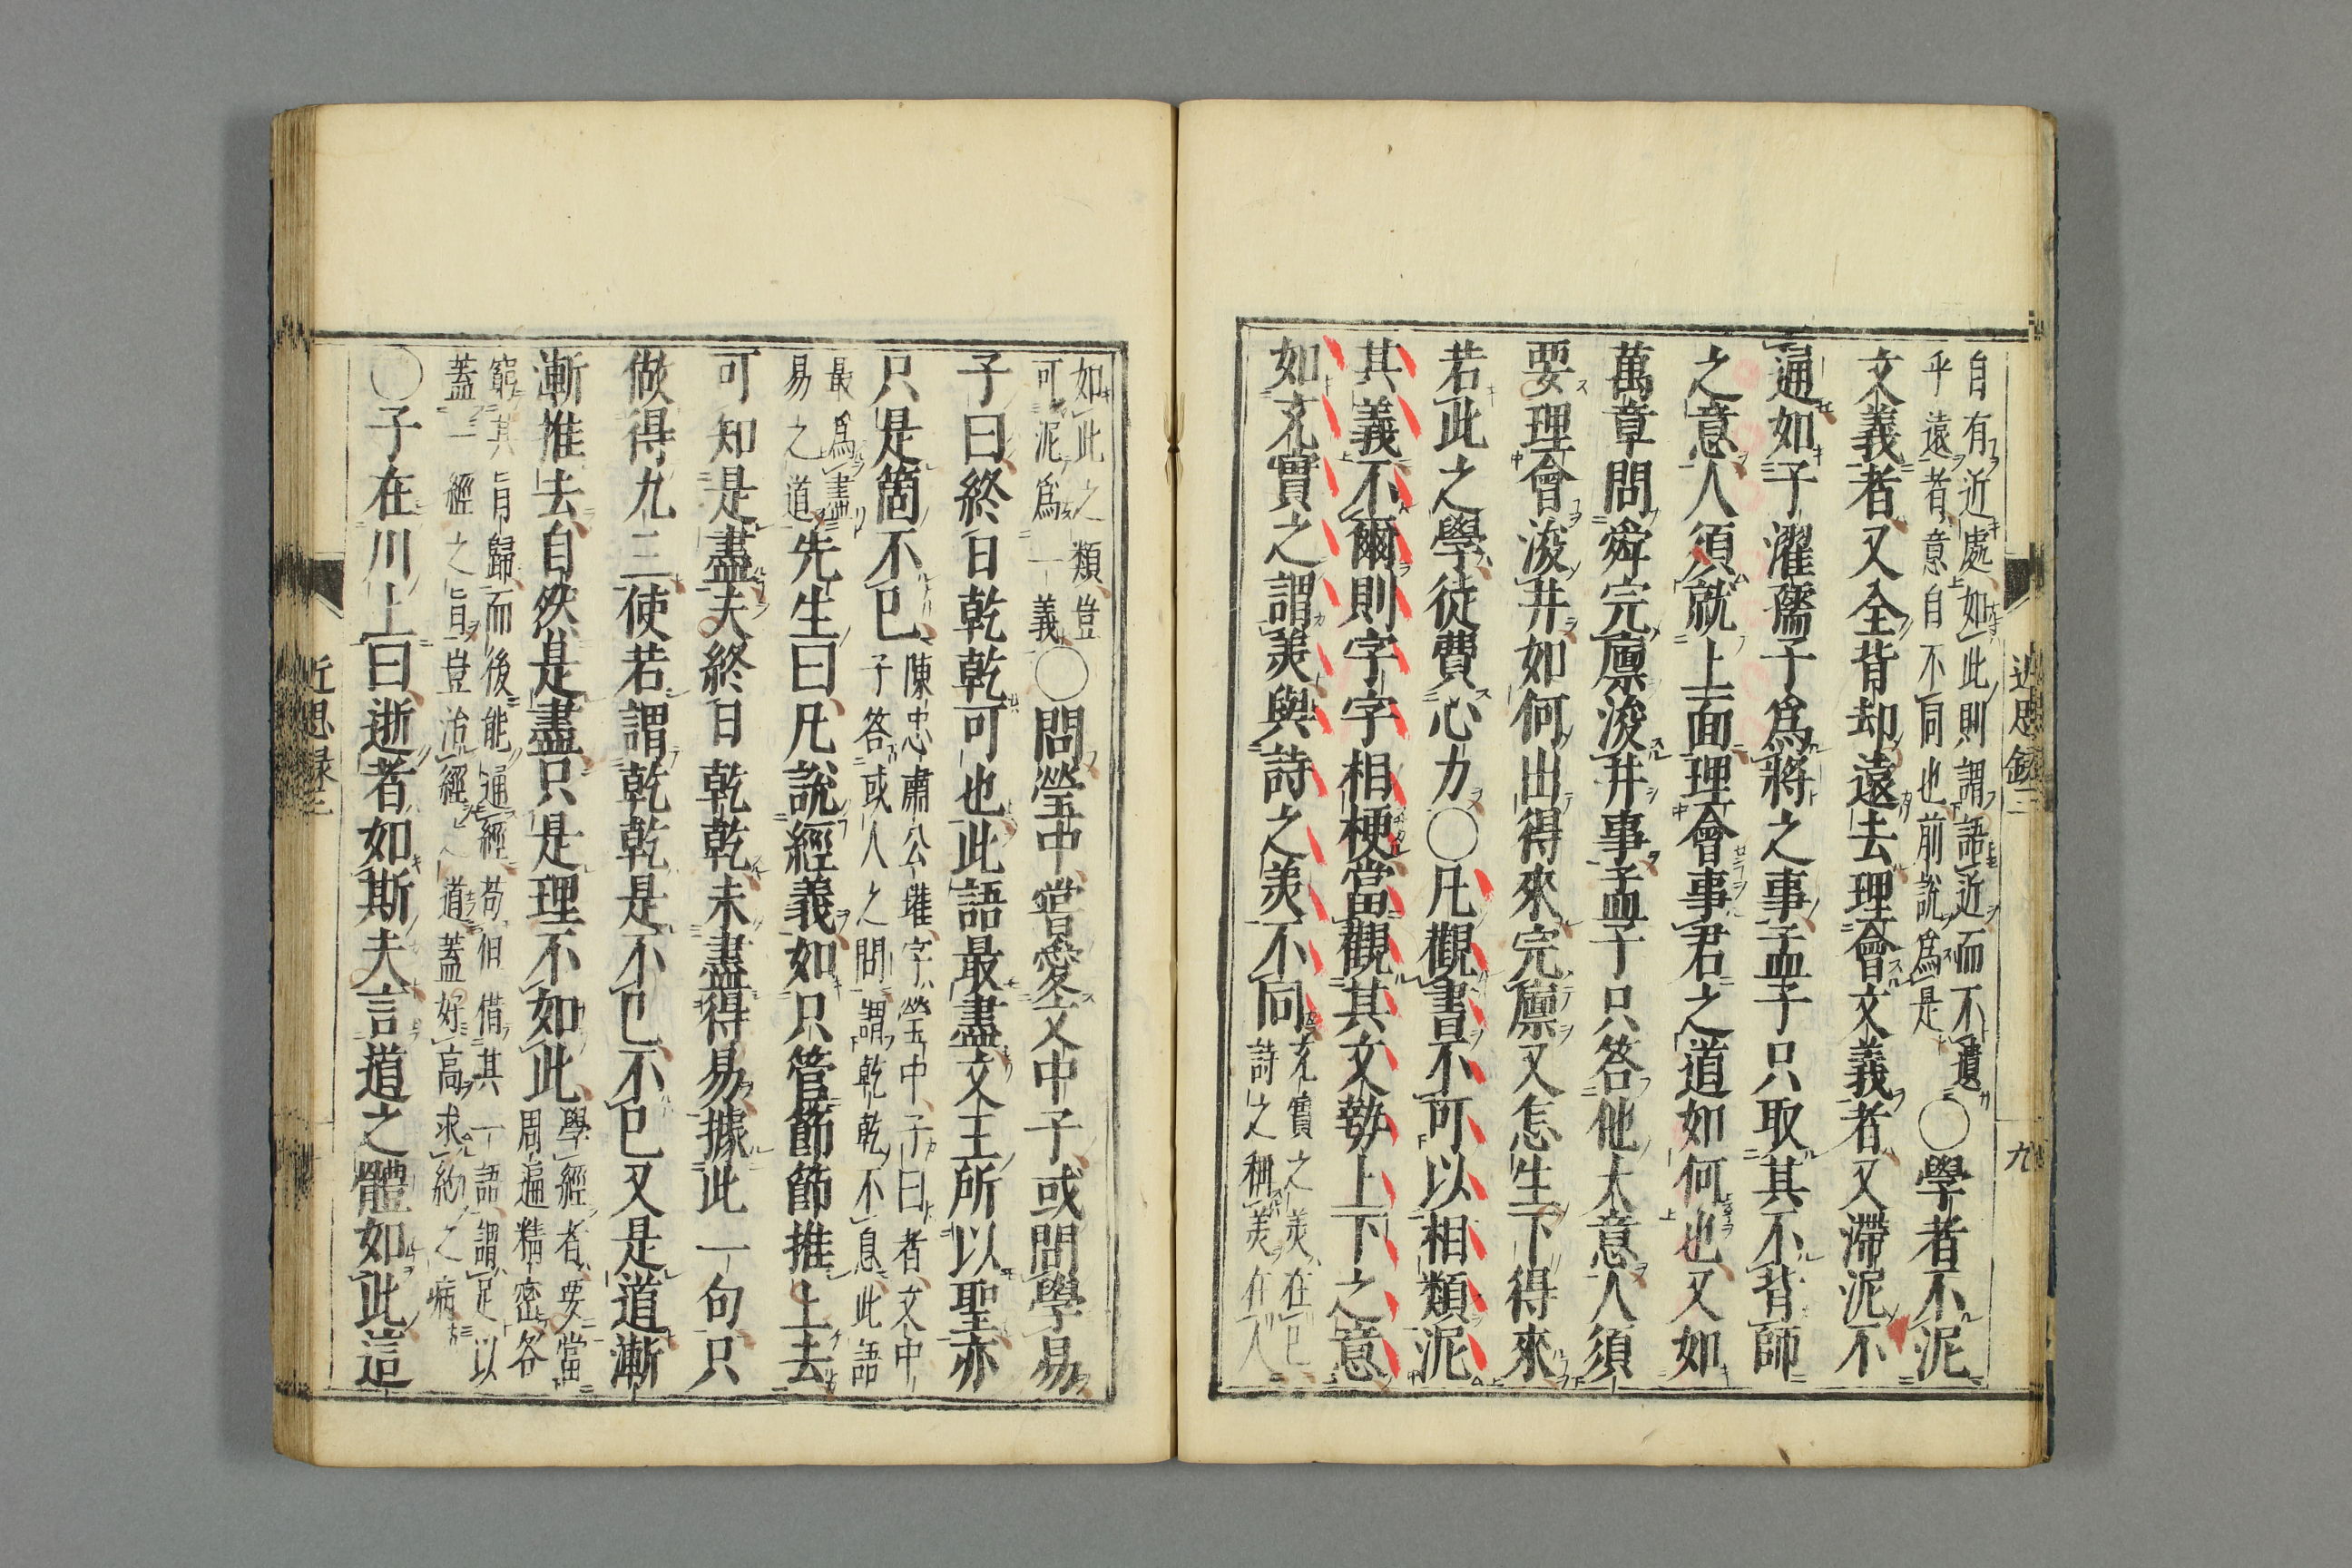 自有近處如此則謂語近而不遺
乎遠者意自不同也前說爲是
○學者不泥
文義者又全背却遠去理會文義者又滯泥不
通如子濯孺子爲將之事孟子只取其不背師
之意人須就上面理會事君之道如何也又如
萬章問舜完廪浚井事孟子只答他大意人須
要理會浚井如何出得來完廪又怎生下得來
若此之學徒費心力○凡觀書不可以相類泥
其義不爾則字字相梗當觀其文勢上下之意
如充實之謂美與詩之美不同
充實之美在己
詩之稱美在人
近思錄三
九
如此之類豈
可泥爲一義
○問瑩中嘗愛文中子或問學易
子曰終日乾乾可也此語最盡文王所以聖亦
只是箇不已
陳忠肅公瓘字瑩中子曰者文中
子答或人之問謂乾乾不息此語
最爲盡
易之道
先生曰凡說經義如只管節節推上去
可知是盡夫終日乾乾未盡得易據此一句只
做得九三使若謂乾乾是不已不已又是道漸
漸推去自然是盡只是理不如此
學經者要當
周遍精密各
窮其旨歸而後能通經苟但借其一語謂足以
蓋一經之旨豈治經之道蓋好高求約之病
○子在川上曰逝者如斯夫言道之體如此這
近思录三